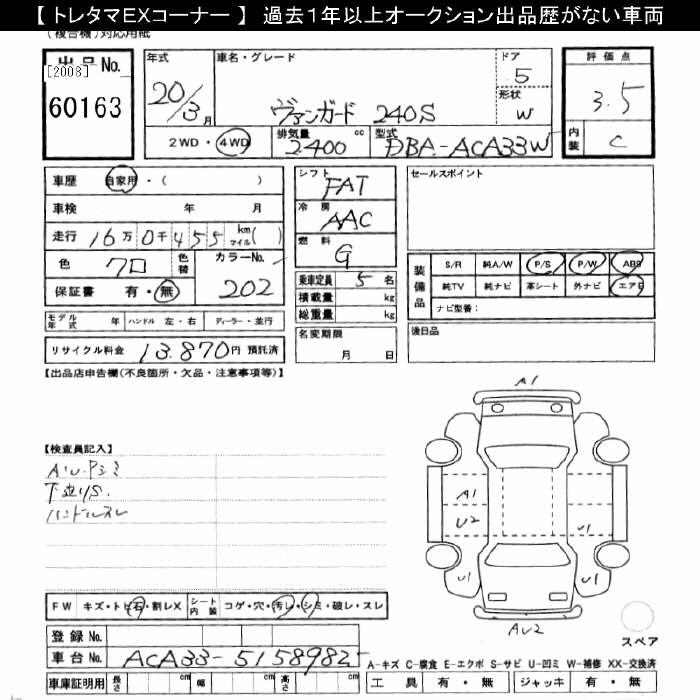 【 トレタマEXコーナー 】 過去1年以上オークション出品歴がない車両
(複合機)対応用紙
出品No.
[2008]
60163
年式
20/3月
車名・グレード
ヴァンガード 240S
ドア
5
形状
W
評価点
3.5
内装
C
2WD・4WD
排気量
2.400 cc
型式
DBA-ACA33W
車歴 自家用・( )
車検 年 月
走行 16万0千455 km マイル( )
色 クロ 色替 カラーNo. 202
保証書 有・無
モデル年式 年 ハンドル 左・右 ディーラー・並行
リサイクル料金 13.870円 預託済
シフト FAT
冷房 AAC
燃料 G
乗車定員 5名
積載量 kg
総重量 kg
名変期限
月 日
セールスポイント
装備品
S/R 純A/W P/S P/W ABS
純TV 純ナビ 革シート 外ナビ エアB
ナビ型番:
後日品
【出品店申告欄(不良箇所・欠品・注意事項等)】
【検査員記入】
A・U・Pシミ
下廻りS.
ハンドルスレ
A1
A1
U2
U1
U1
U1
AU2
スペア
FW キズ・トビ石・割レX シート内装 コゲ・穴・汚レ・シミ・破レ・スレ
登録No.
車台No. ACA33-5158982
車庫証明用 長さ cm 幅 cm 高さ cm
A-キズ C-腐食 E-エクボ S-サビ U-凹ミ W-補修 XX-交換済
工具 有・無 ジャッキ 有・無